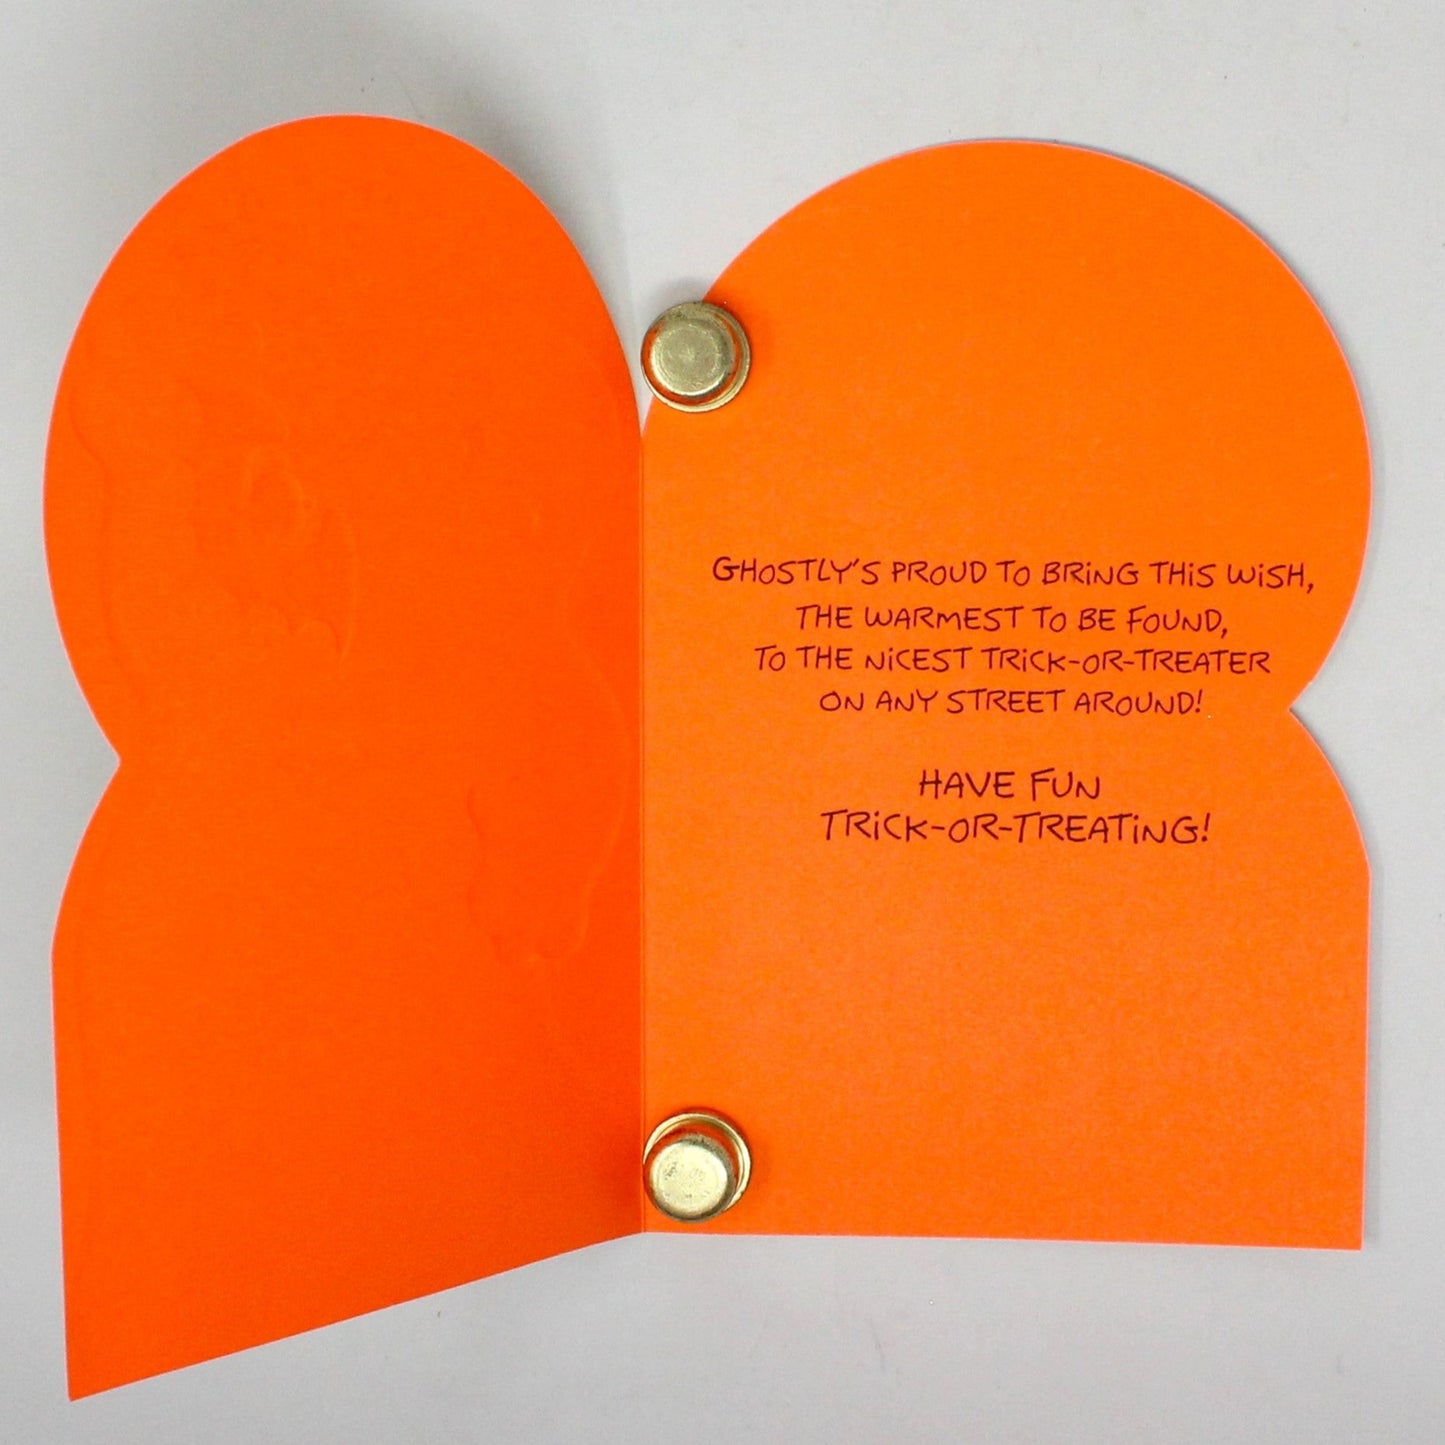 GHOSTLY'S PROUD TO BRiNG THiS WiSH,
THE WARMEST TO BE FOUND,
TO THE NiCEST TRiCK-OR-TREATER
ON ANY STREET AROUND!
HAVE FUN
TRiCK-OR-TREATiNG!